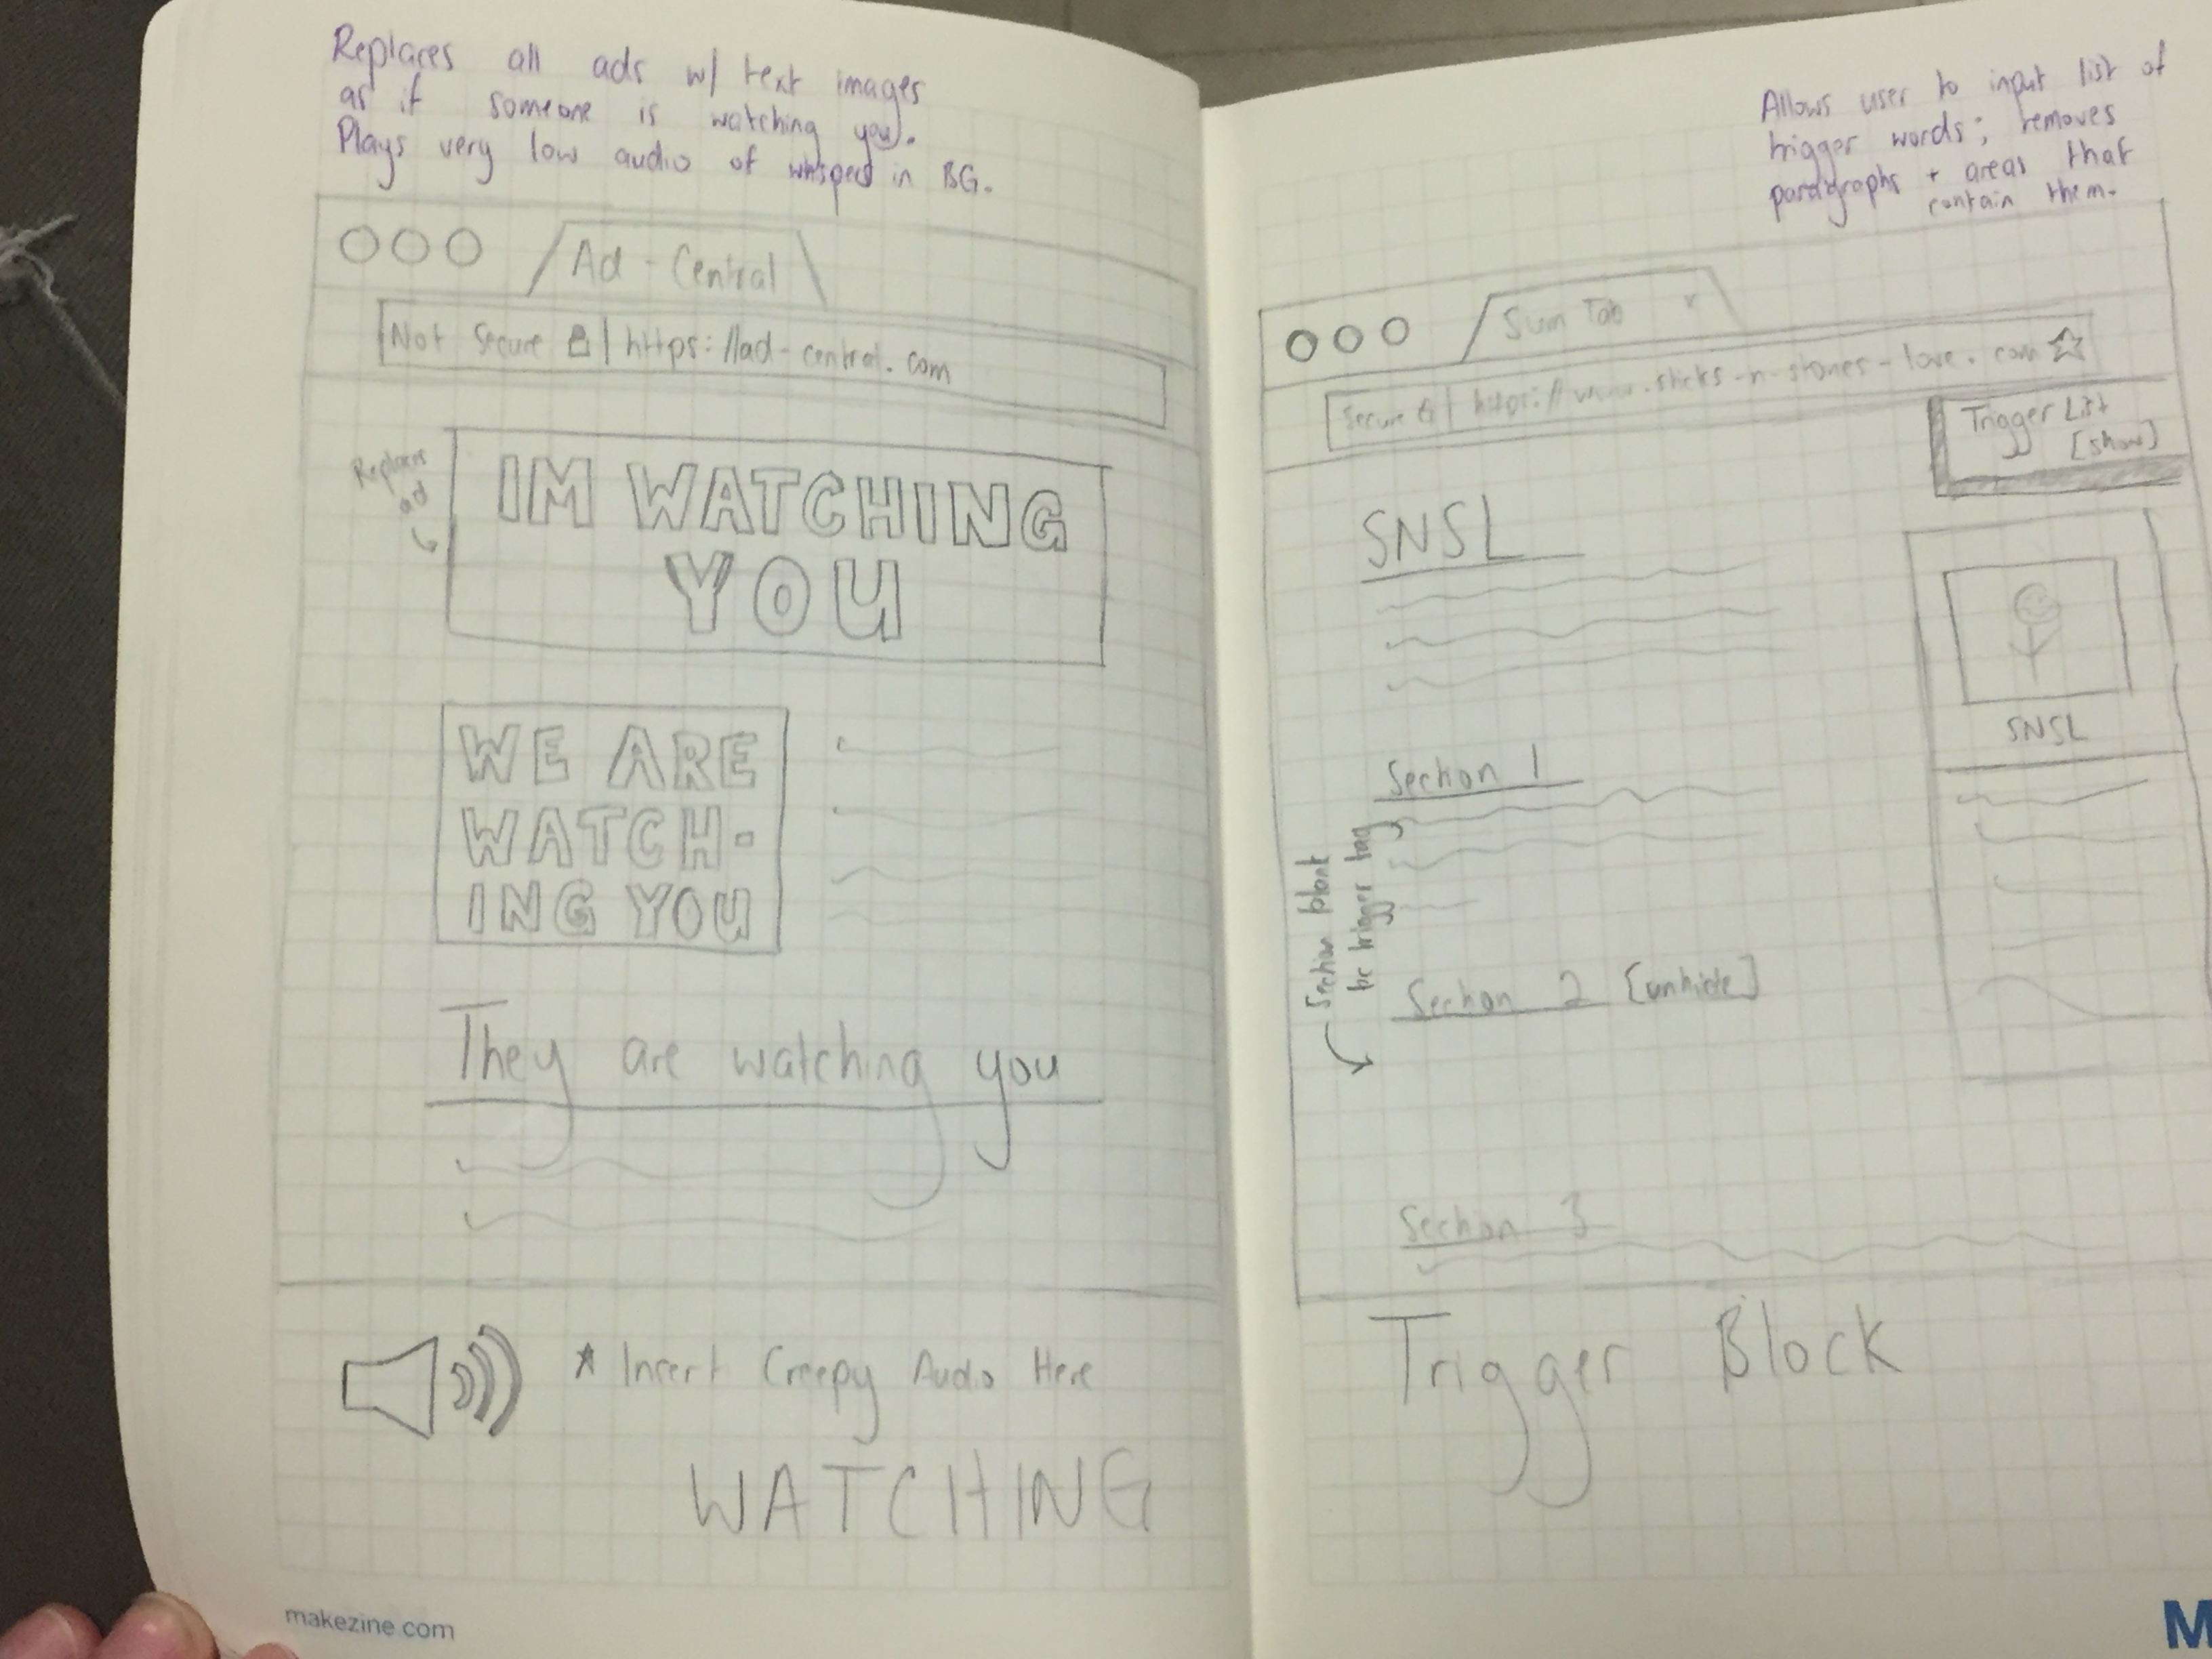 Replaces all ads w/ text images
as if someone is watching you.
Plays very low audio of whispers in BG.
Ad - Central
Not Secure | https://ad-central.com
Replaces
ad
IM WATCHING
YOU
WE ARE
WATCH-
ING YOU
They are watching you
* Insert Creepy Audio Here
WATCHING
makezine.com
Allows user to input list of
trigger words; removes
paragraphs + areas that
contain them.
Sum Tab x
Secure | https://www.sticks-n-stones-love.com
Trigger List
[show]
SNSL
SNSL
Section 1
Section blank
bc trigger tag
Section 2 [unhide]
Section 3
Trigger Block
M